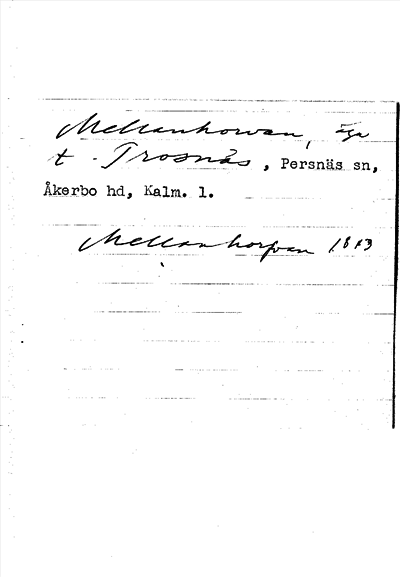 Mellanhorvan, äga
t. Trosnäs, Persnäs sn,
Åkerbo hd, Kalm. l.
Mellanhorfvan 1813